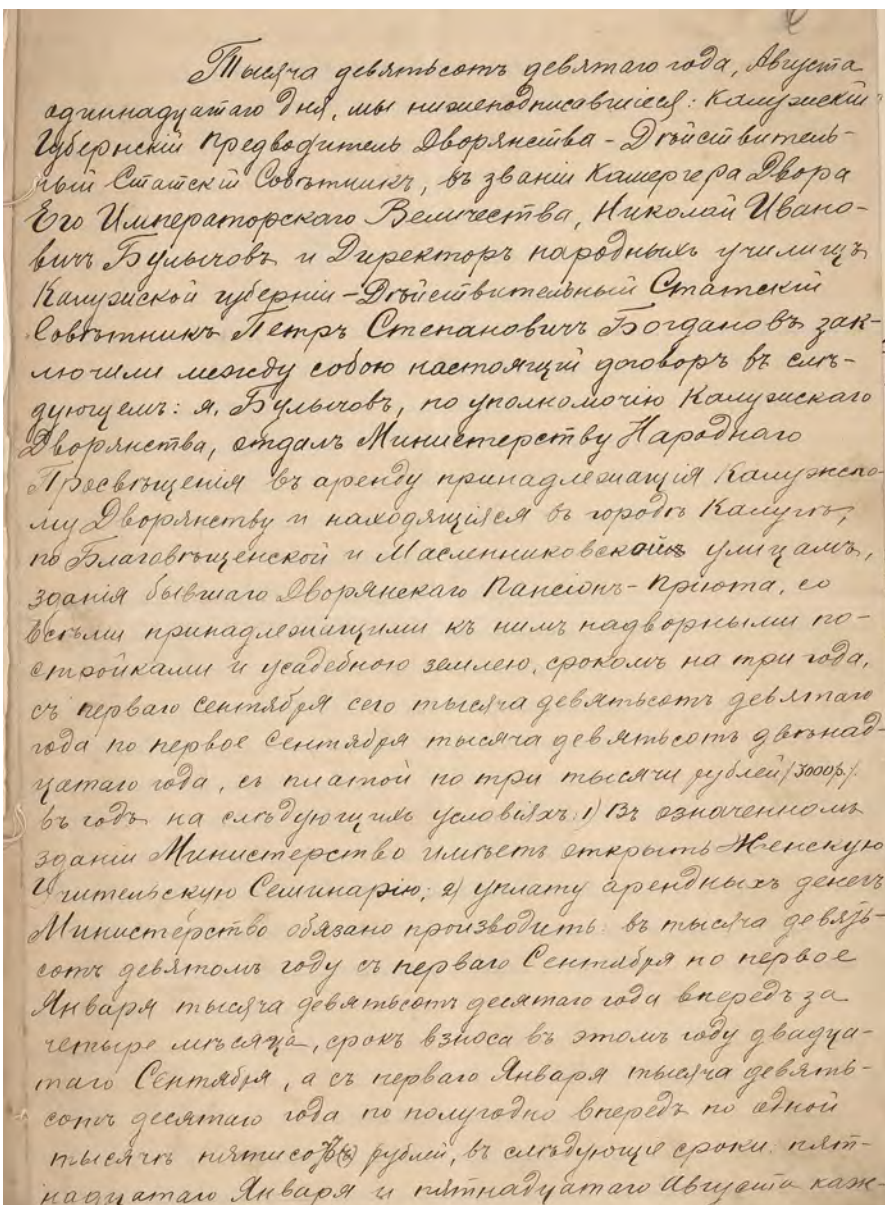 Тысяча девятьсотъ девятаго года, Августа
одиннадцатаго дня, мы нижеподписавшіеся: Калужскій
Губернскій Предводитель Дворянства - Дѣйствитель-
ный Статскій Совѣтникъ, въ званіи Камергера Двора
Его Императорскаго Величества, Николай Ивано-
вичъ Булычовъ и Директоръ народныхъ училищъ
Калужской губерніи - Дѣйствительный Статскій
Совѣтникъ Петръ Степановичъ Богдановъ зак-
лючили между собою настоящій договоръ въ слѣ-
дующемъ: я, Булычовъ, по уполномочію Калужскаго
Дворянства, отдалъ Министерству Народнаго
Просвѣщенія въ аренду принадлежащія Калужско-
му Дворянству и находящіяся въ городѣ Калугѣ,
по Благовѣщенской и Масленниковской улицамъ,
зданія бывшаго Дворянскаго Пансіонъ-Пріюта, со
всѣми принадлежащими къ нимъ надворными по-
стройками и усадебною землею, срокомъ на три года,
съ перваго Сентября сего тысяча девятьсотъ девятаго
года по первое Сентября тысяча девятьсотъ двѣнад-
цатаго года, съ платой по три тысячи рублей /3000р./
въ годъ на слѣдующихъ условіяхъ: 1) Въ означенномъ
зданіи Министерство имѣетъ открыть Женскую
Учительскую Семинарію; 2) уплату арендныхъ денегъ
Министерство обязано производить: въ тысяча девять-
сотъ девятомъ году съ перваго Сентября по первое
Января тысяча девятьсотъ десятаго года впередъ за
четыре мѣсяца, срокъ взноса въ этомъ году двадца-
таго Сентября, а съ перваго Января тысяча девять-
сотъ десятаго года по полугодно впередъ по одной
тысячѣ пятисотъ рублей, въ слѣдующіе сроки: пят-
надцатаго Января и пятнадцатаго Августа каж-